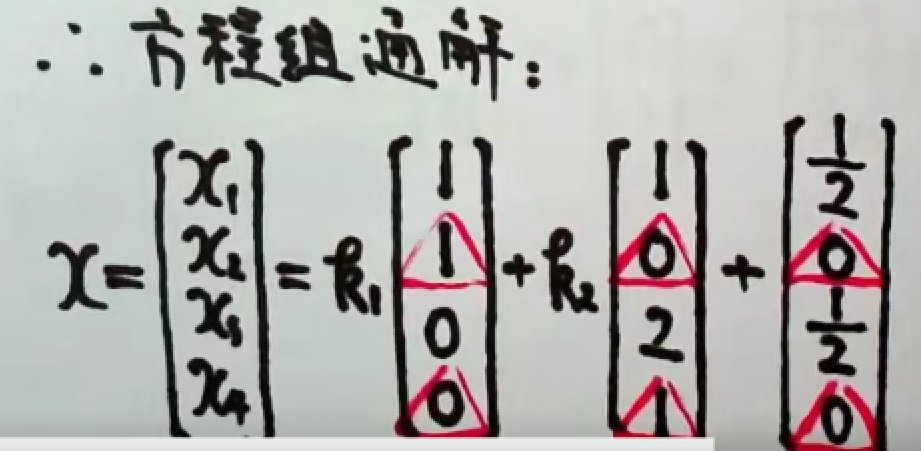 ∴ 方程组通解:
x = [x₁ x₂ x₃ x₄] = k₁ [1 1 0 0] + k₂ [1 0 2 1] + [1/2 0 1/2 0]